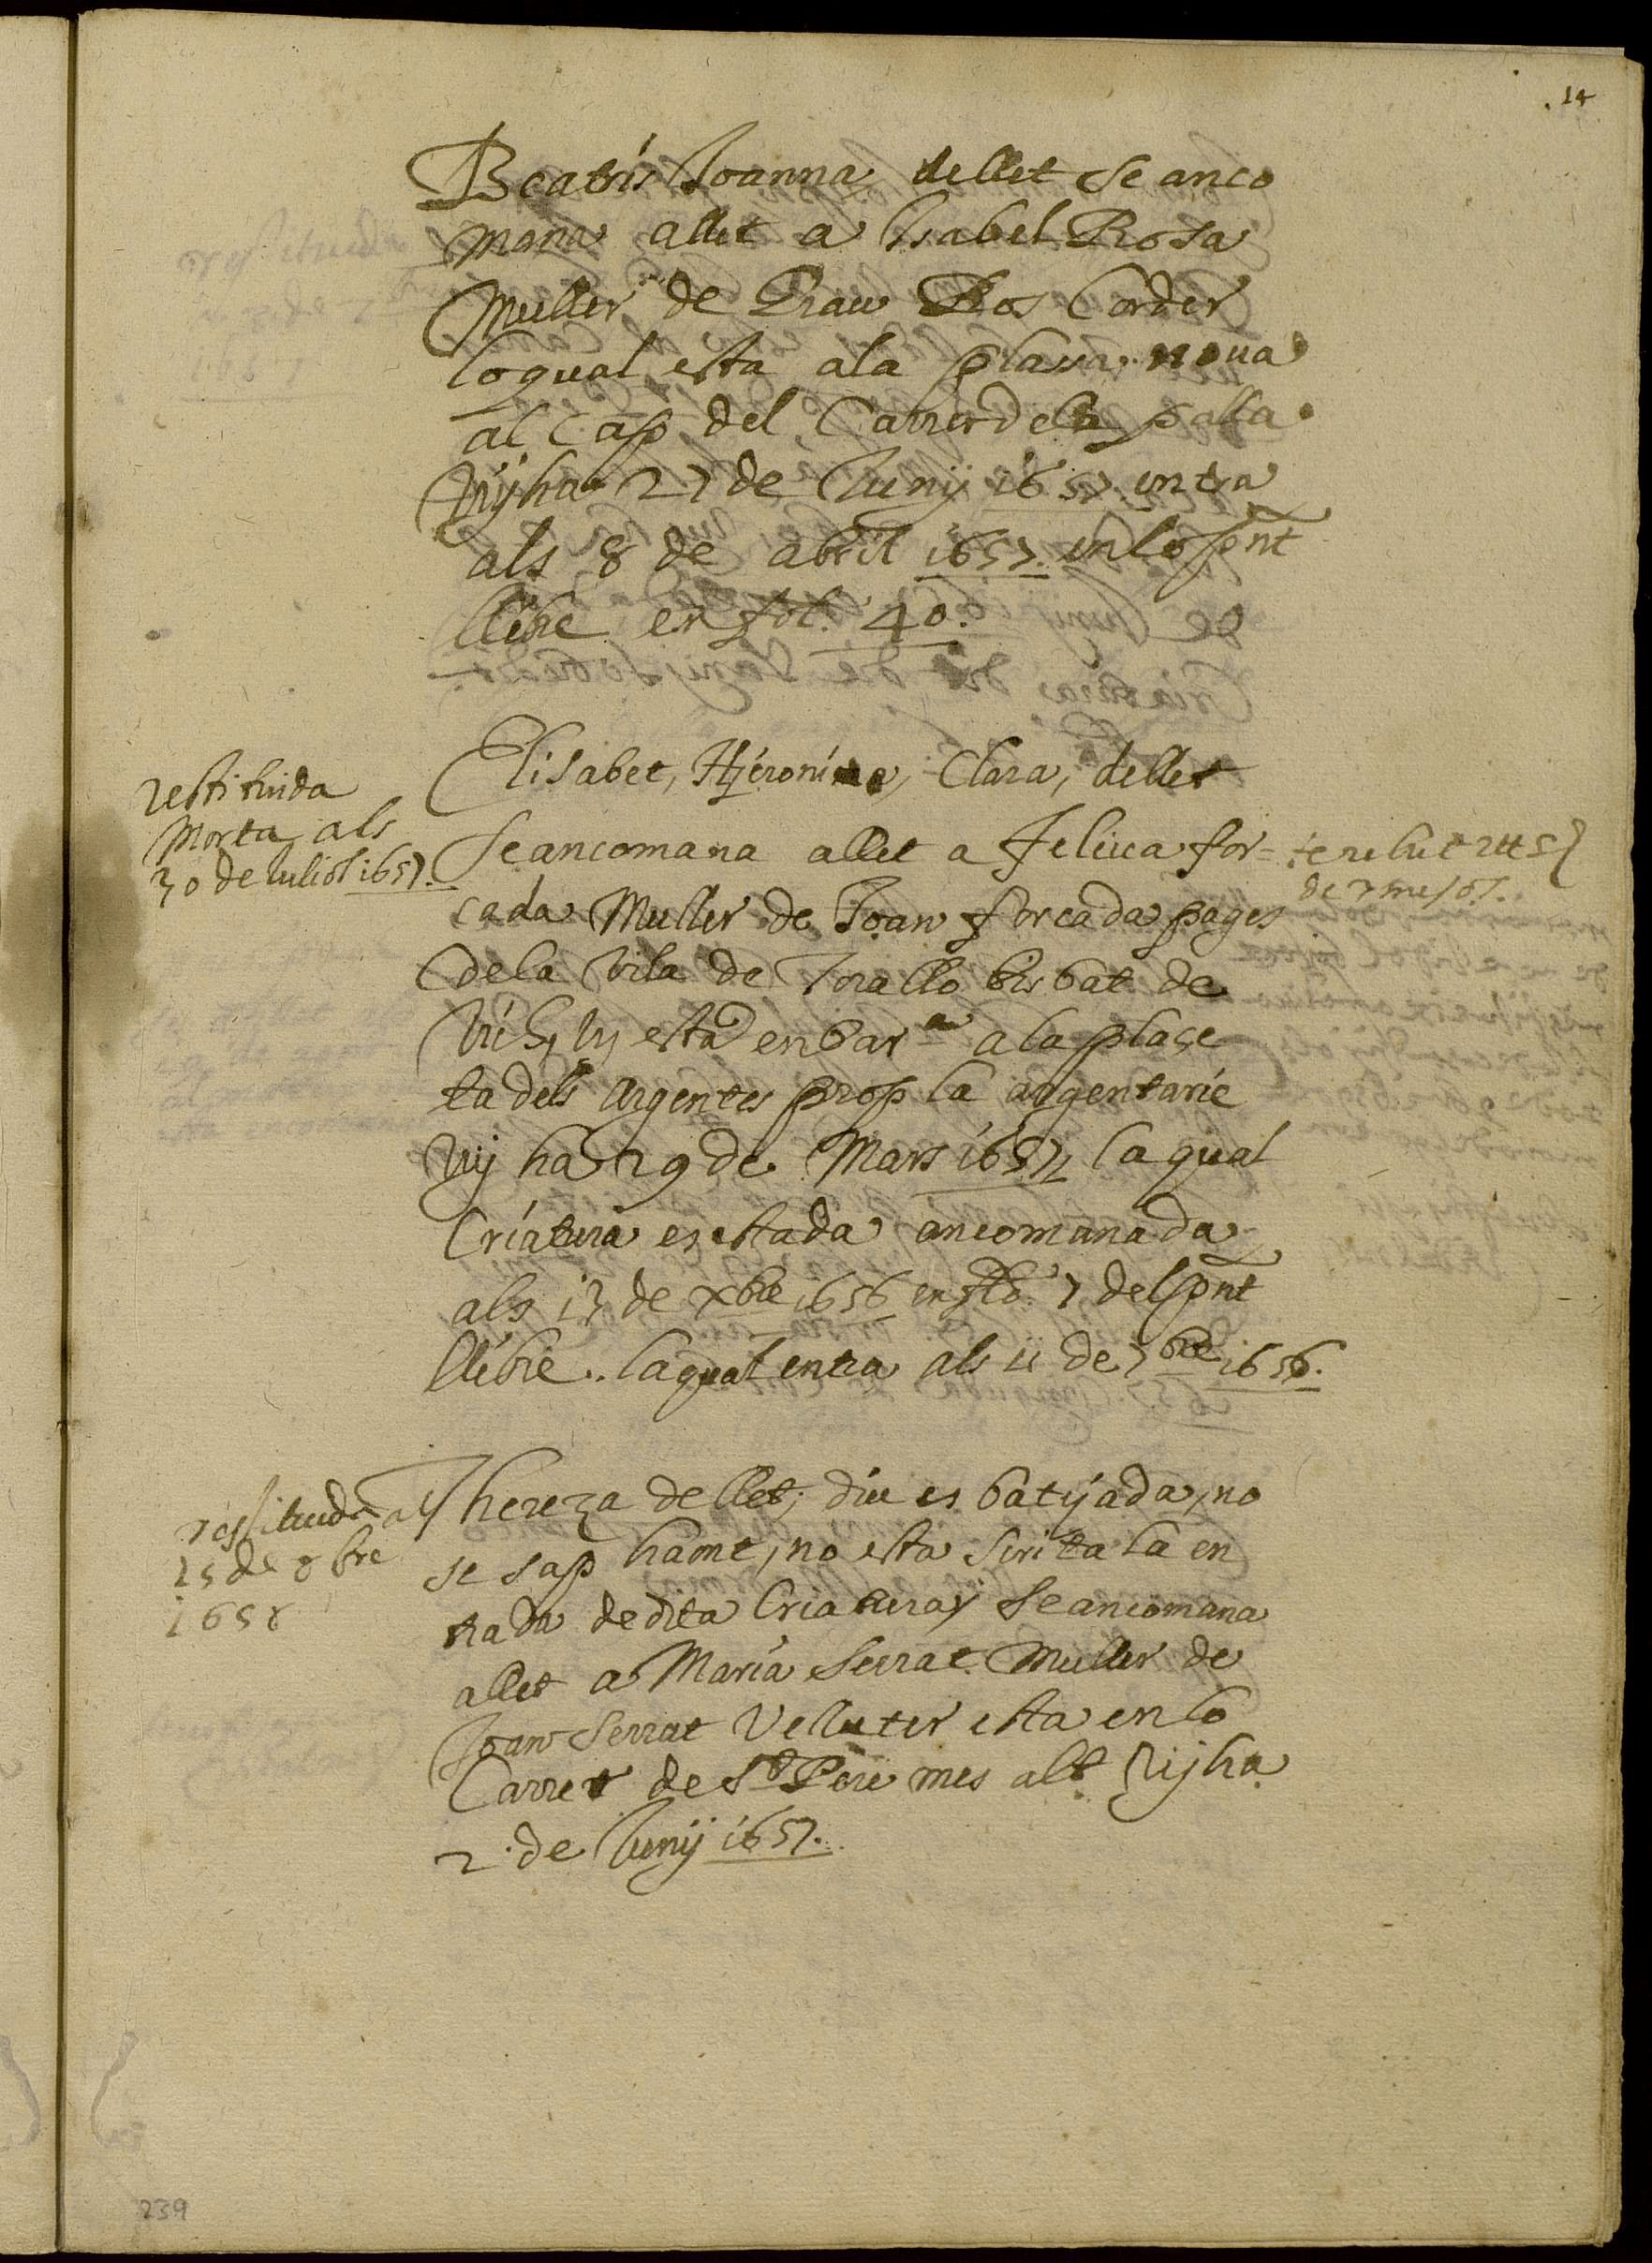 14
Beatris Joanna dellet se anco
mana allet a Isabel Rosa
Muller de Grau Ros Corder
loqual esta ala plassa noua
al Cap del Carrer dela palla
Vuyha 27 de Juny 1657 entra
als 8 de abril 1657. en lo pnt
llibre en fol. 40.
restituida
Morta als
30 de Juliol 1657.
Elisabet, Hieronima, Clara, dellet
se ancomana allet a Feliua for=
te rebut
de 7 mesos.
cada Muller de Joan forcada pages
dela Vila de Torallo bisbat de
Vich, vuy esta en Bar.na a la plaçe
ta dels Argentes prop la argentarie
Vuy ha 29 de Mars 1657 la qual
Criatura es estada ancomanada
als 13 de xbre 1656 en fo. 7 del pnt
llibre. laqual entra als 11 de 7bre 1656.
restituida als
25 de 8bre
1658
Thereza dellet, diu es batyada, no
se sap hont, no esta scrita la en
trada de dita Criatura, y se ancomana
allet a Maria Serrat Muller de
Joan Serrat Velluter esta en lo
Carrer de St Pere mes alt Vuyha
2 de Juny 1657.
239